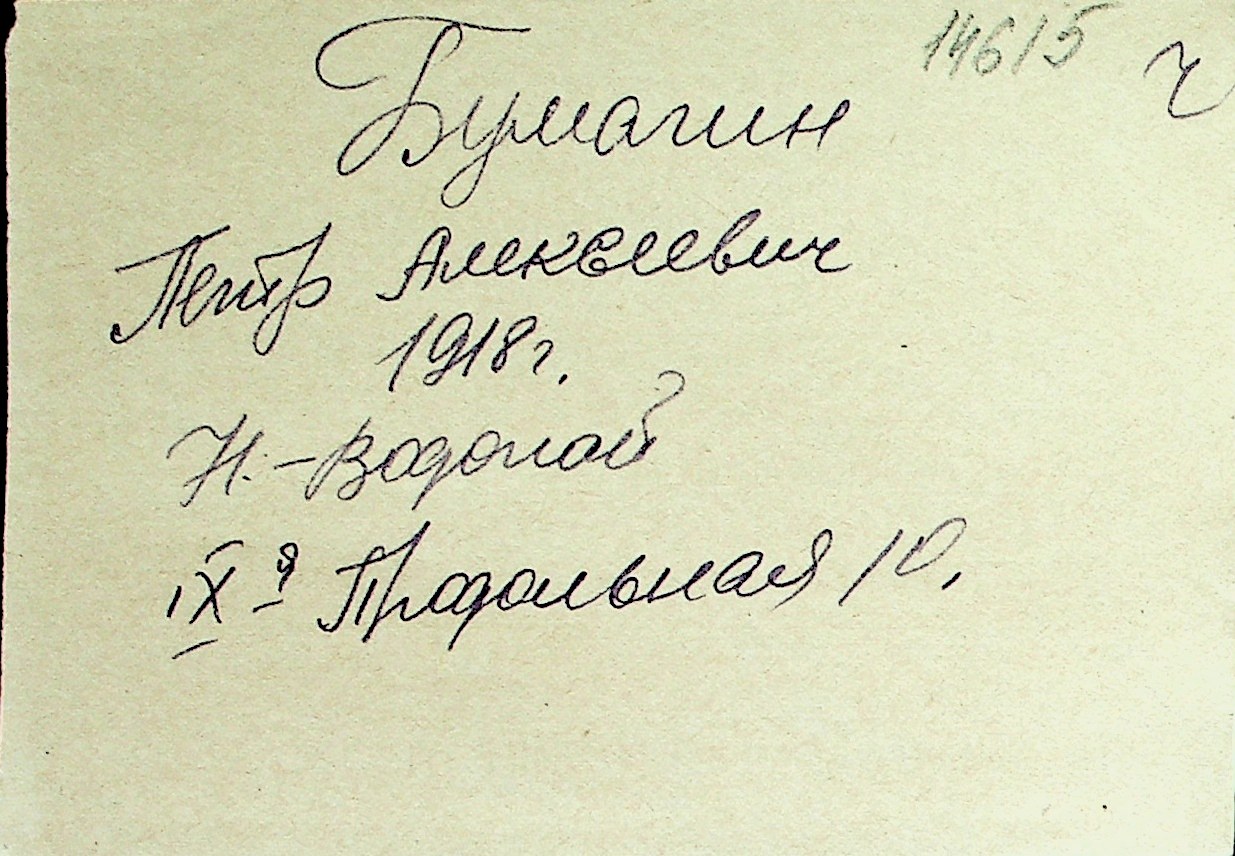 14615 ч
Бумагин
Петр Алексеевич
1918г.
Н.-Водопой
IX я Продольная 10.